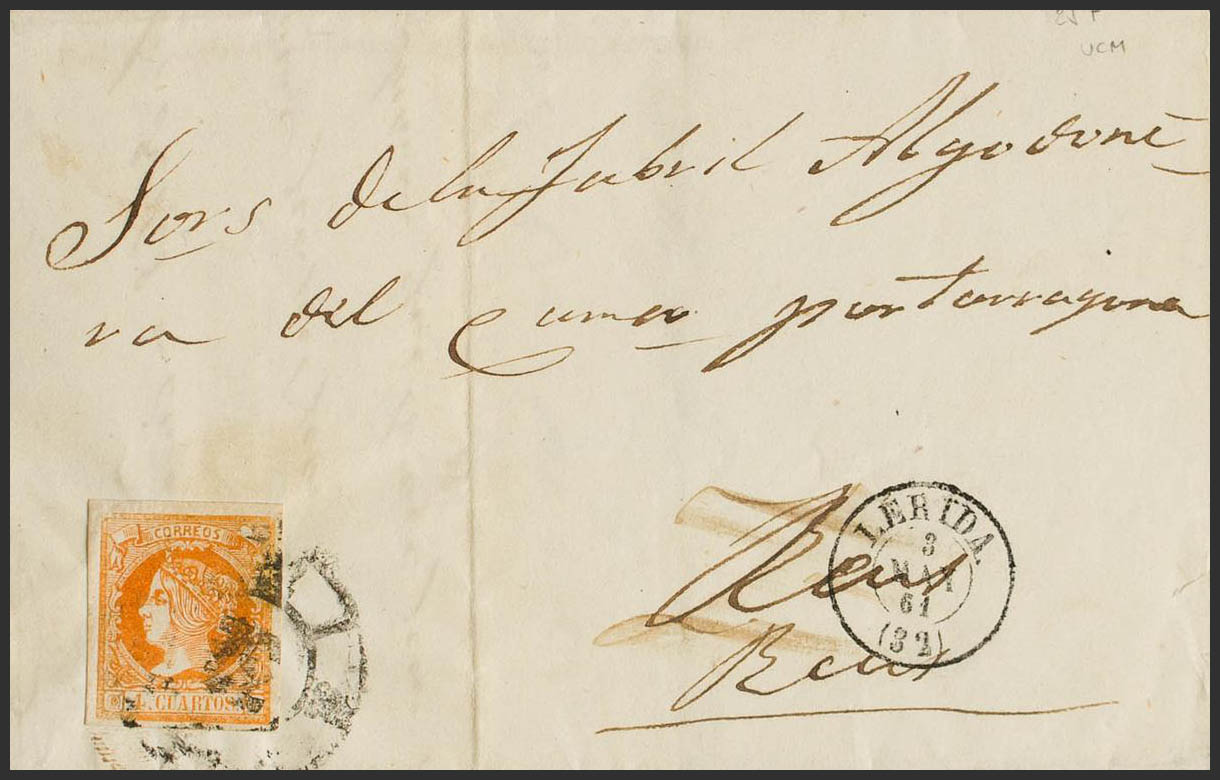 UCM
Sors de la Fabril Algodone
ra del Camo por Tarragona
CORREOS
4 CUARTOS
LÉRIDA
3
MAY
61
(32)
Reus
Reus